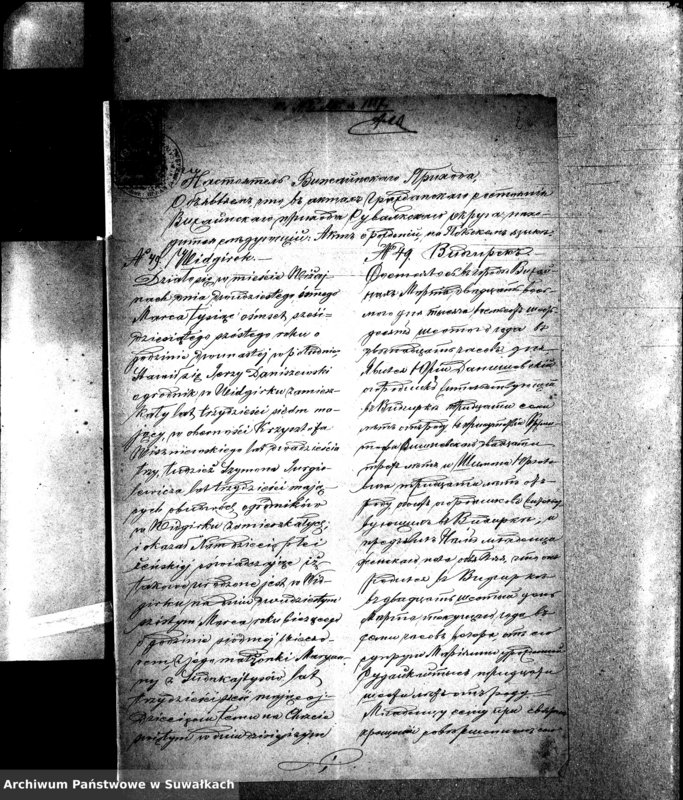 Настоятель Вижайнского Прихода
Объявляет что въ актахъ гражданского состоянія
Вижайнского прихода Сувалкского округа, нахо-
дится слѣдующій: Актъ о рожденіи, на Польскомъ языкѣ:
№ 49. Widgirek.—
Działo się w mieście Wiżaj
nach dnia dwudziestego ósmego
Marca tysiąc ośmset sześć-
dziesiątego szóstego roku o
godzinie dwunastej w p.
Stawił się Jerzy Daniszewski
ogrodnik w Widgirku zamiesz-
kały lat trzydzieści siedm ma-
jący, w obecności Krzysztofa
Wiszniewskiego lat dwadzieścia
trzy, tudzież Szymona Jurgie
lewicza lat trzydzieści mają-
cych obudwóch ogrodników
w Widgirku zamieszkałych,
i okazał Nam dziecię płci
żeńskiej oświadczając iż
takowe urodzone jest w Wid-
girku na dniu dwudziestym
szóstym Marca roku bieżącego
o godzinie siódmej wieczo-
rem z jego małżonki Maryan-
ny z Sudajtysów lat
trzydzieści sześć mającej.
Dziecięciu temu na Chrzcie
świętym w dniu dzisiejszym
№ 49. Видгирекъ.—
Состоялось въ городѣ Вижай-
нахъ Марта двадцать вось-
мого дня тысяча восемьсотъ шесть-
десятъ шестого года въ
двѣнадцать часовъ дня.
Явился Юрій Данишевскій
огородникъ жительствующій
въ Видгирку тридцати семи
лѣтъ отъ роду въ присутствіи Криш-
тофа Вишневского двадцати
трехъ лѣтъ и Шимона Юргеле-
вича тридцати лѣтъ отъ
роду обоихъ огородниковъ жительст-
вующихъ въ Видгирку, и
предъявилъ Намъ младенца
женскаго пола объявляя, что оно
родилось въ Видгирку
въ двадцать шестой день
Марта текущаго года въ
семь часовъ вечера отъ его
супруги Маріанны урожденной
тридцати
шести лѣтъ отъ роду.
Младенцу сему при святомъ
крещеніи совершенномъ
Archiwum Państwowe w Suwałkach